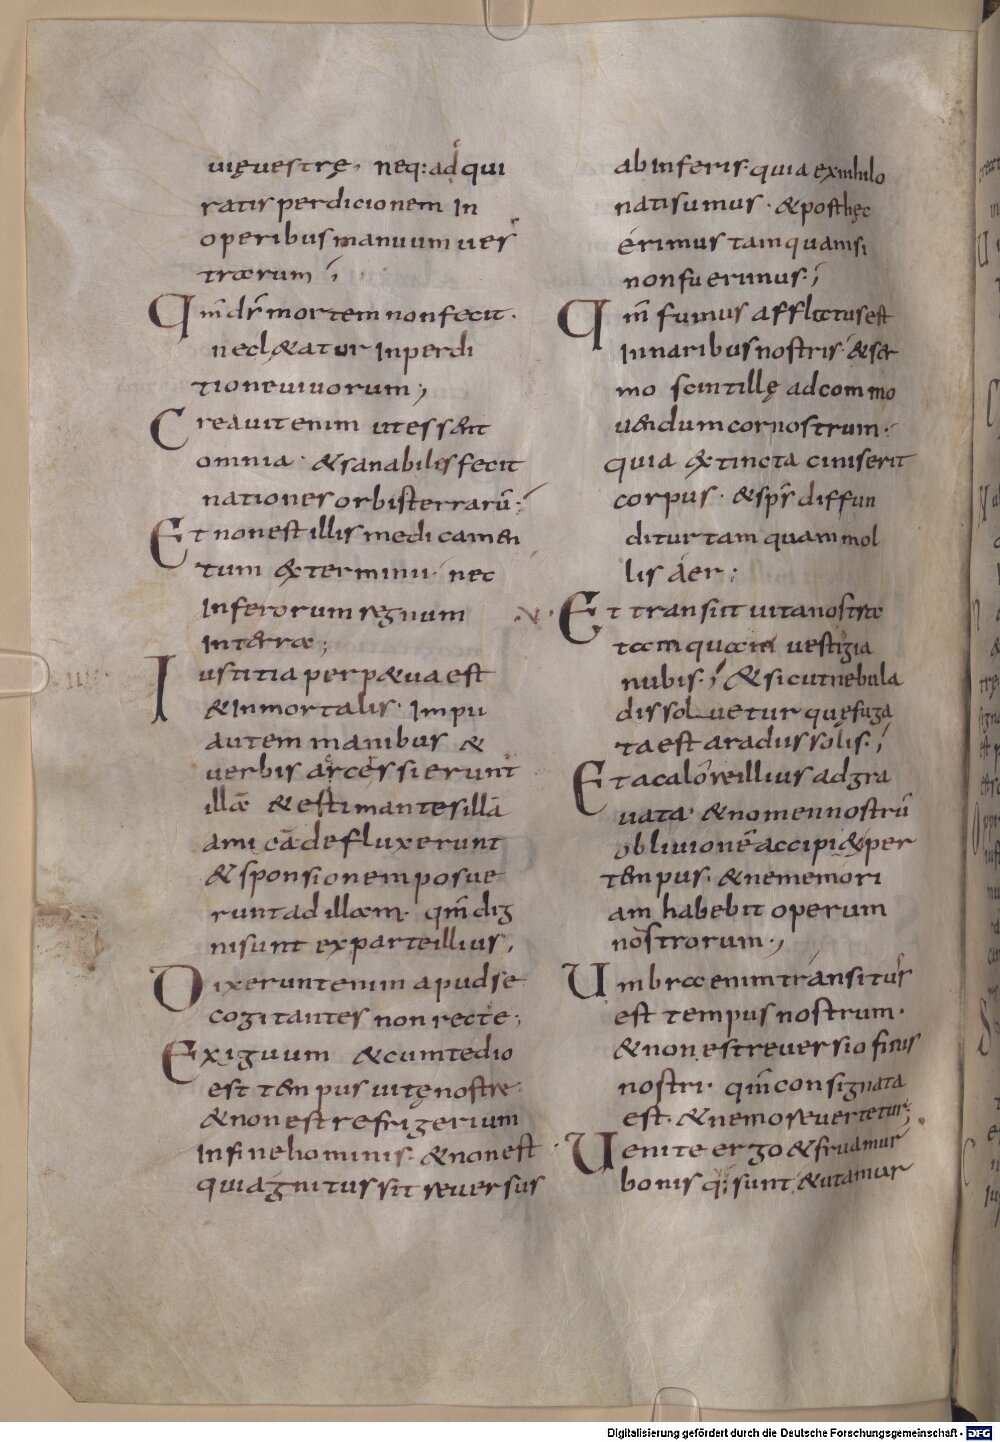 uięuestrę· neq: adqui
ratis perdicionem in
operibus manuum ues
trarum ;
Qm̄ dr̄ mortem non fecit·
nec l&atur in perdi
tione uiuorum;
Creauit enim ut essent
omnia· & sanabiles fecit
nationes orbis terrarū·;
Et non est illis medicamen
tum exterminii· nec
inferorum regnum
in terra;
Iustitia perp&ua est
& inmortalis· Impii
autem manibus &
uerbis arcessierunt
illā & estimantes illā
amicā defluxerunt
& sponsionem posue
runt ad illam· qm̄ dig
ni sunt ex parte illius;
Dixerunt enim apud se
cogitantes non recte;
Exiguum & cum tedio
est tempus uitę nostre·
& non est refrigerium
in fine hominis· & non est
qui agnitus sit reuersus
ab inferis· quia ex nihilo
nati sumus· & post hęc
erimus tamquam si
non fuerimus·;
Qm̄ fumus afflatus est
in naribus nostris· & ser
mo scintillę ad commo
uendum cor nostrum·
quia extincta cinis erit
corpus· & spr̄ diffun
ditur tamquam mol
lis aer;
Et transiit uita nostra
tamquam uestigia
nubis·; & sicut nebula
dissoluetur quę fuga
ta est a radus solis·;
Et a calore illius adgra
uata· & nomen nostrū
obliuionē accipi& per
tempus· & ne memori
am habebit operum
nostrorum·;
Umbra enim transitus
est tempus nostrum·
& non est reuersio finis
nostri· qm̄ consignata
est· & nemo reuertetur;
Uenite ergo & fruamur
bonis q; sunt & utamur
Digitalisierung gefördert durch die Deutsche Forschungsgemeinschaft - DFG